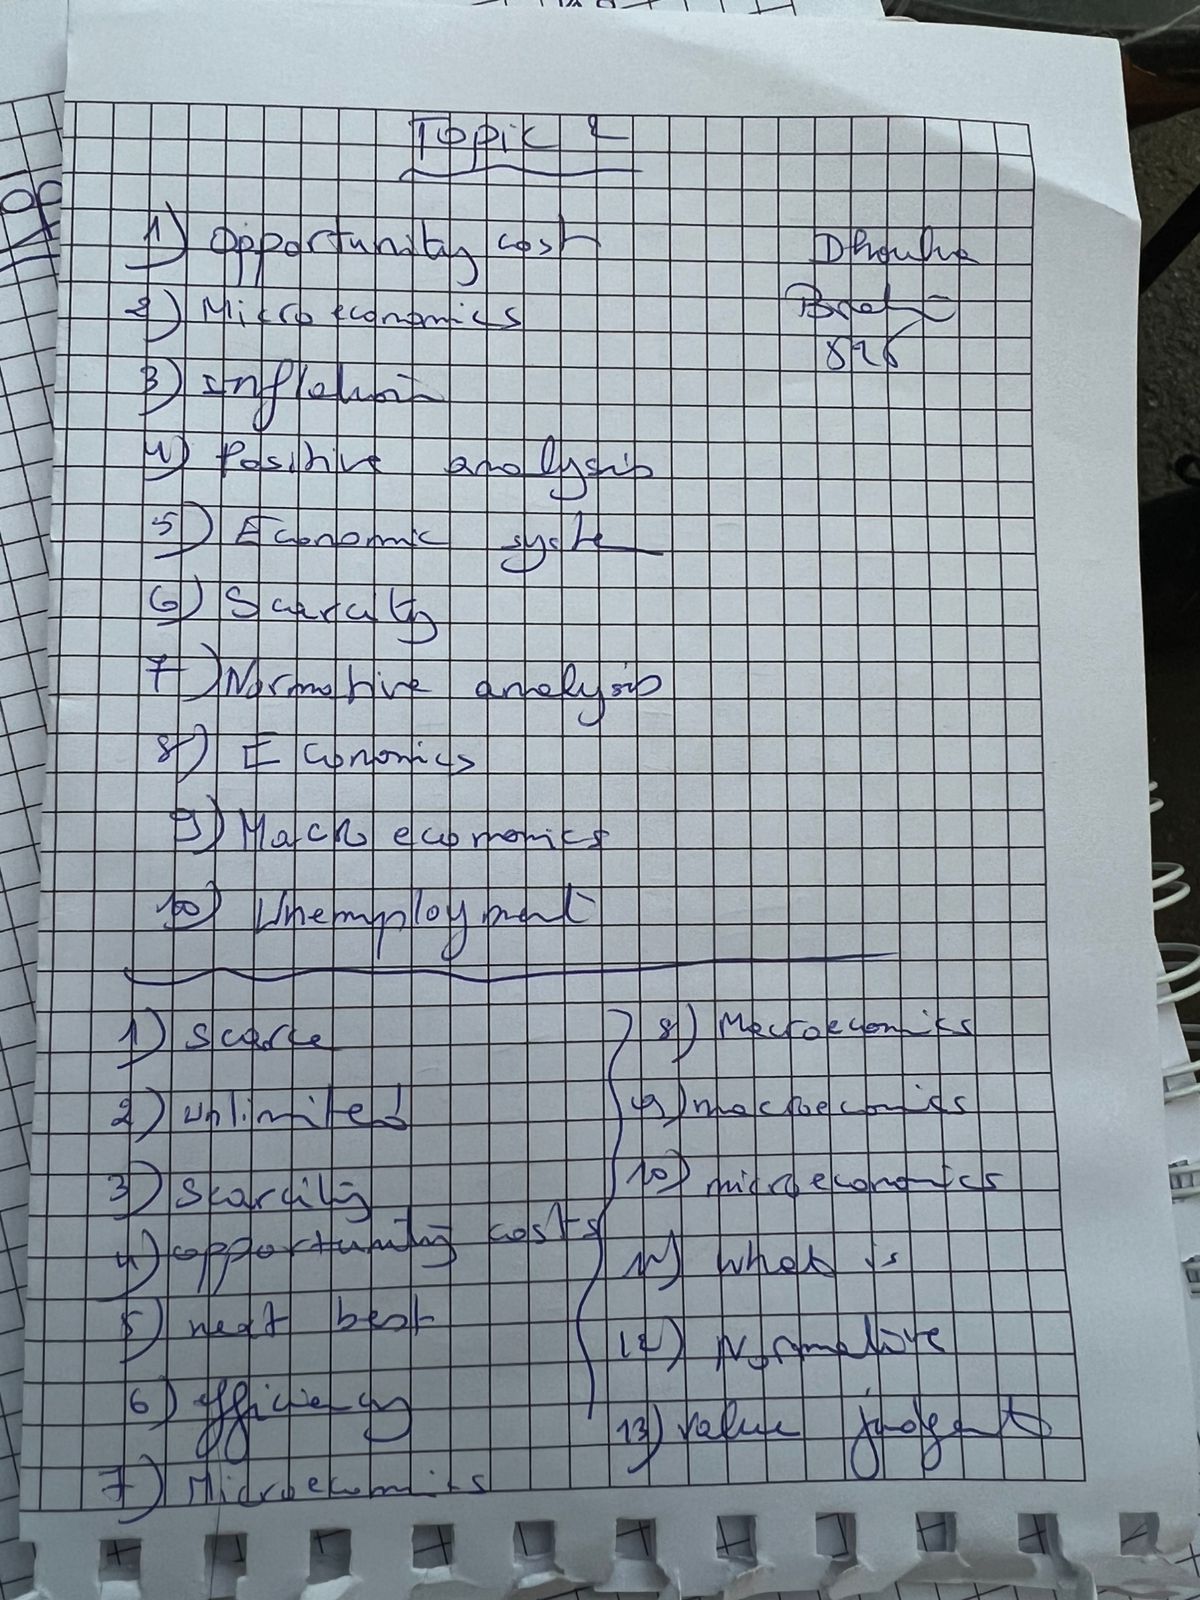 Topic 2
1) Opportunity cost
Dhouha
2) Microeconomics
826
3) Inflation
4) Positive analysis
5) Economic syste
6) Scarcity
7) Normative analysis
8) Economics
9) Macroeconomics
10) Unemployment
1) Scarce
2) unlimited
3) Scarcity
4) opportunity costs
5) next best
6) efficiency
7) Microecomics
8) Macroecomics
9) macroecomics
10) microeconomics
11) what is
12) Normative
13) value judgent